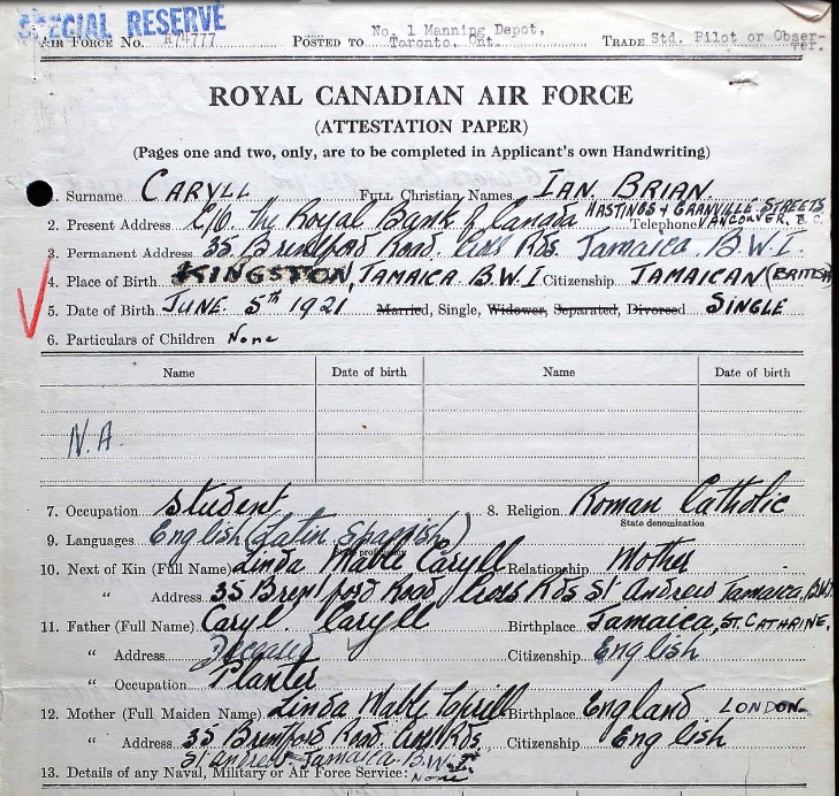 SPECIAL RESERVE
AIR FORCE No. R74777 POSTED TO No. 1 Manning Depot, Toronto, Ont. TRADE Std. Pilot or Obser-
ver.
ROYAL CANADIAN AIR FORCE
(ATTESTATION PAPER)
(Pages one and two, only, are to be completed in Applicant's own Handwriting)
1. Surname CARYLL FULL Christian Names IAN BRIAN
2. Present Address C/O. The Royal Bank of Canada HASTINGS & GRANVILLE STREETS Telephone VANCOUVER, B.C.
3. Permanent Address 35 Brentford Road. Cross Rds. Jamaica. B.W.I.
4. Place of Birth KINGSTON, JAMAICA. B.W.I Citizenship JAMAICAN (BRITISH)
5. Date of Birth JUNE. 5th 1921 Married, Single, Widower, Separated, Divorced SINGLE
6. Particulars of Children None
Name Date of birth Name Date of birth
N.A.
7. Occupation Student 8. Religion Roman Catholic
State denomination
9. Languages English (Latin Spanish)
State proficiency
10. Next of Kin (Full Name) Linda Mable Caryll Relationship Mother
" Address 35 Brentford Road Cross Rds St Andrew Jamaica, B.W.I.
11. Father (Full Name) Caryl. Caryll Birthplace Jamaica, ST. CATHRINE.
" Address Deceased Citizenship English
" Occupation Planter
12. Mother (Full Maiden Name) Linda Mable Birthplace England LONDON
" Address 35 Brentford Road. Cross Rds Citizenship English
St Andrew Jamaica. B.W.I.
13. Details of any Naval, Military or Air Force Service: None